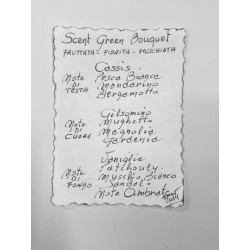 Scent Green Bouquet
FRUTTATA - FIORITA - MUSCHIATA
Cassis
NOTE DI TESTA
Pesca Bianca
Mandarino
Bergamotto
Gelsomino
NOTE DI CUORE
Mughetto
Magnolia
Gardenia
Vaniglia
NOTE DI FONDO
Patchouly
Muschio Bianco
Sandalo
Note Ambrate